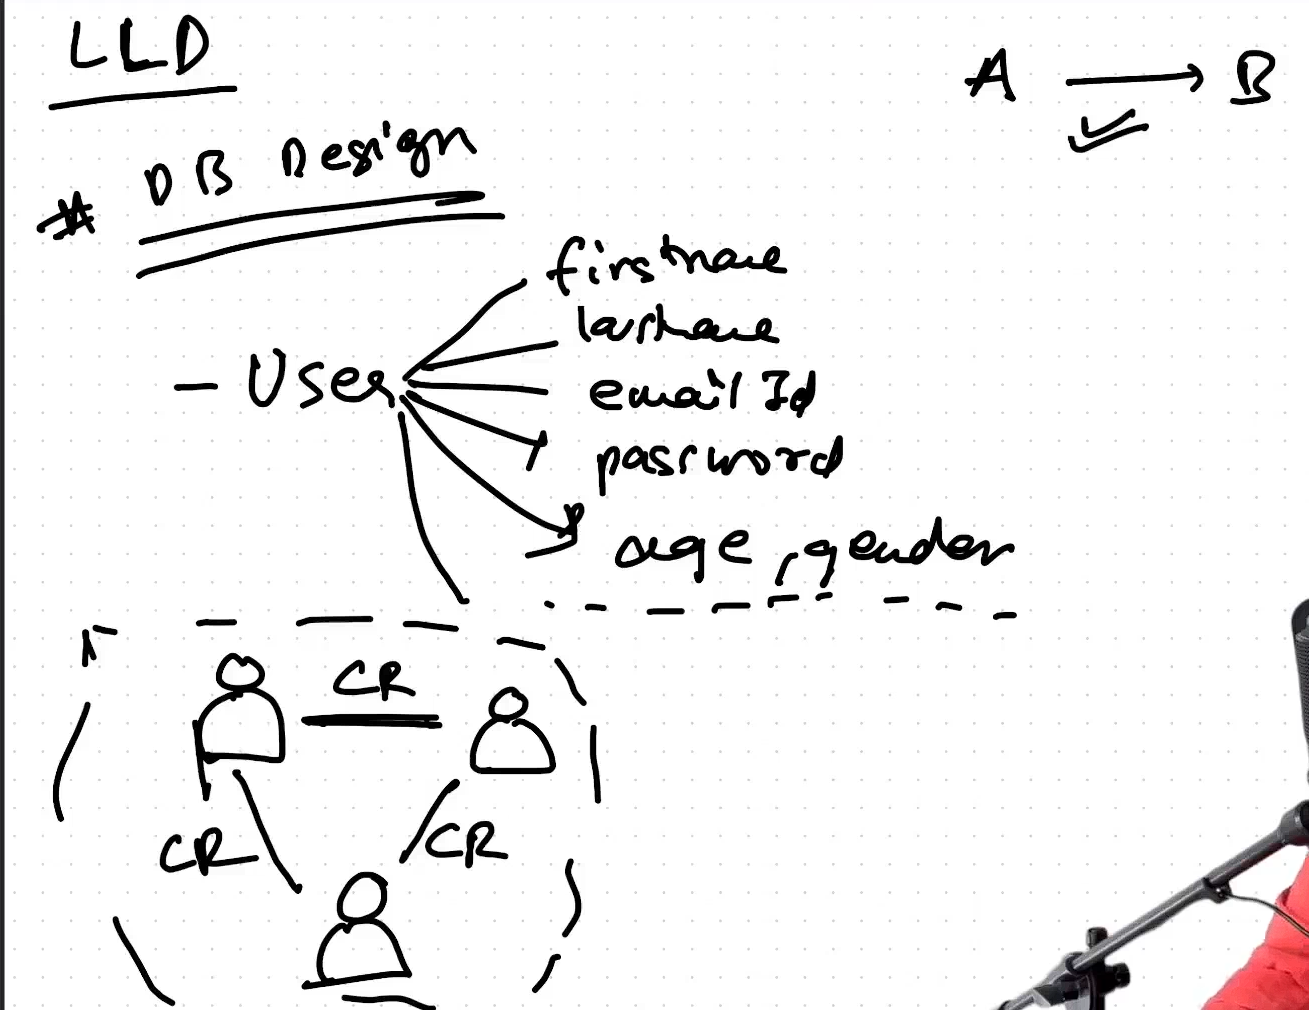 LLD
A → B
# DB Design
- User
firstname
lastname
email Id
password
age, gender
CR
CR
CR